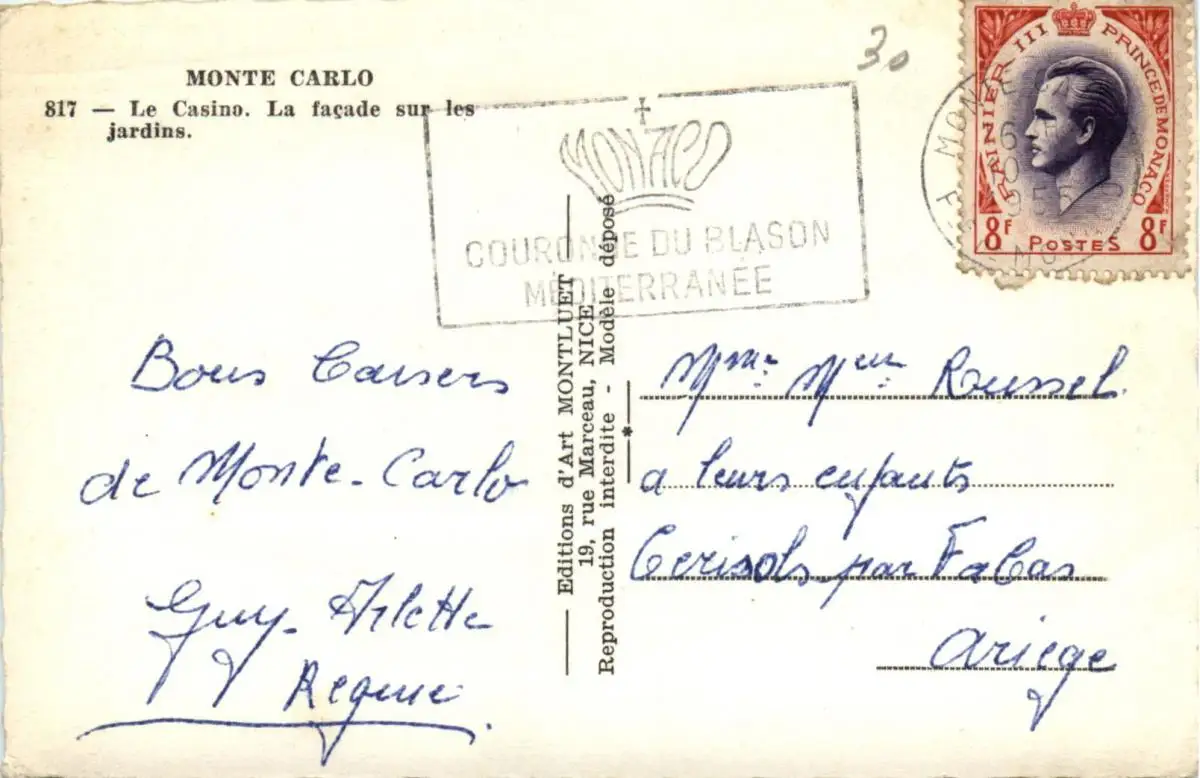 MONTE CARLO
817 — Le Casino. La façade sur les
jardins.
30
MONACO
COURONNE DU BLASON
MÉDITERRANÉE
RAINIER III PRINCE DE MONACO
8F POSTES 8F
MONTE
Bons Baisers
de Monte-Carlo
Guy. Arlette
Regine
— Editions d'Art MONTLUET —
19, rue Marceau, NICE
Reproduction interdite - Modèle déposé
*
Mme. Meur. Roussel.
a leurs enfants
Cerisols par Fabas
Ariege